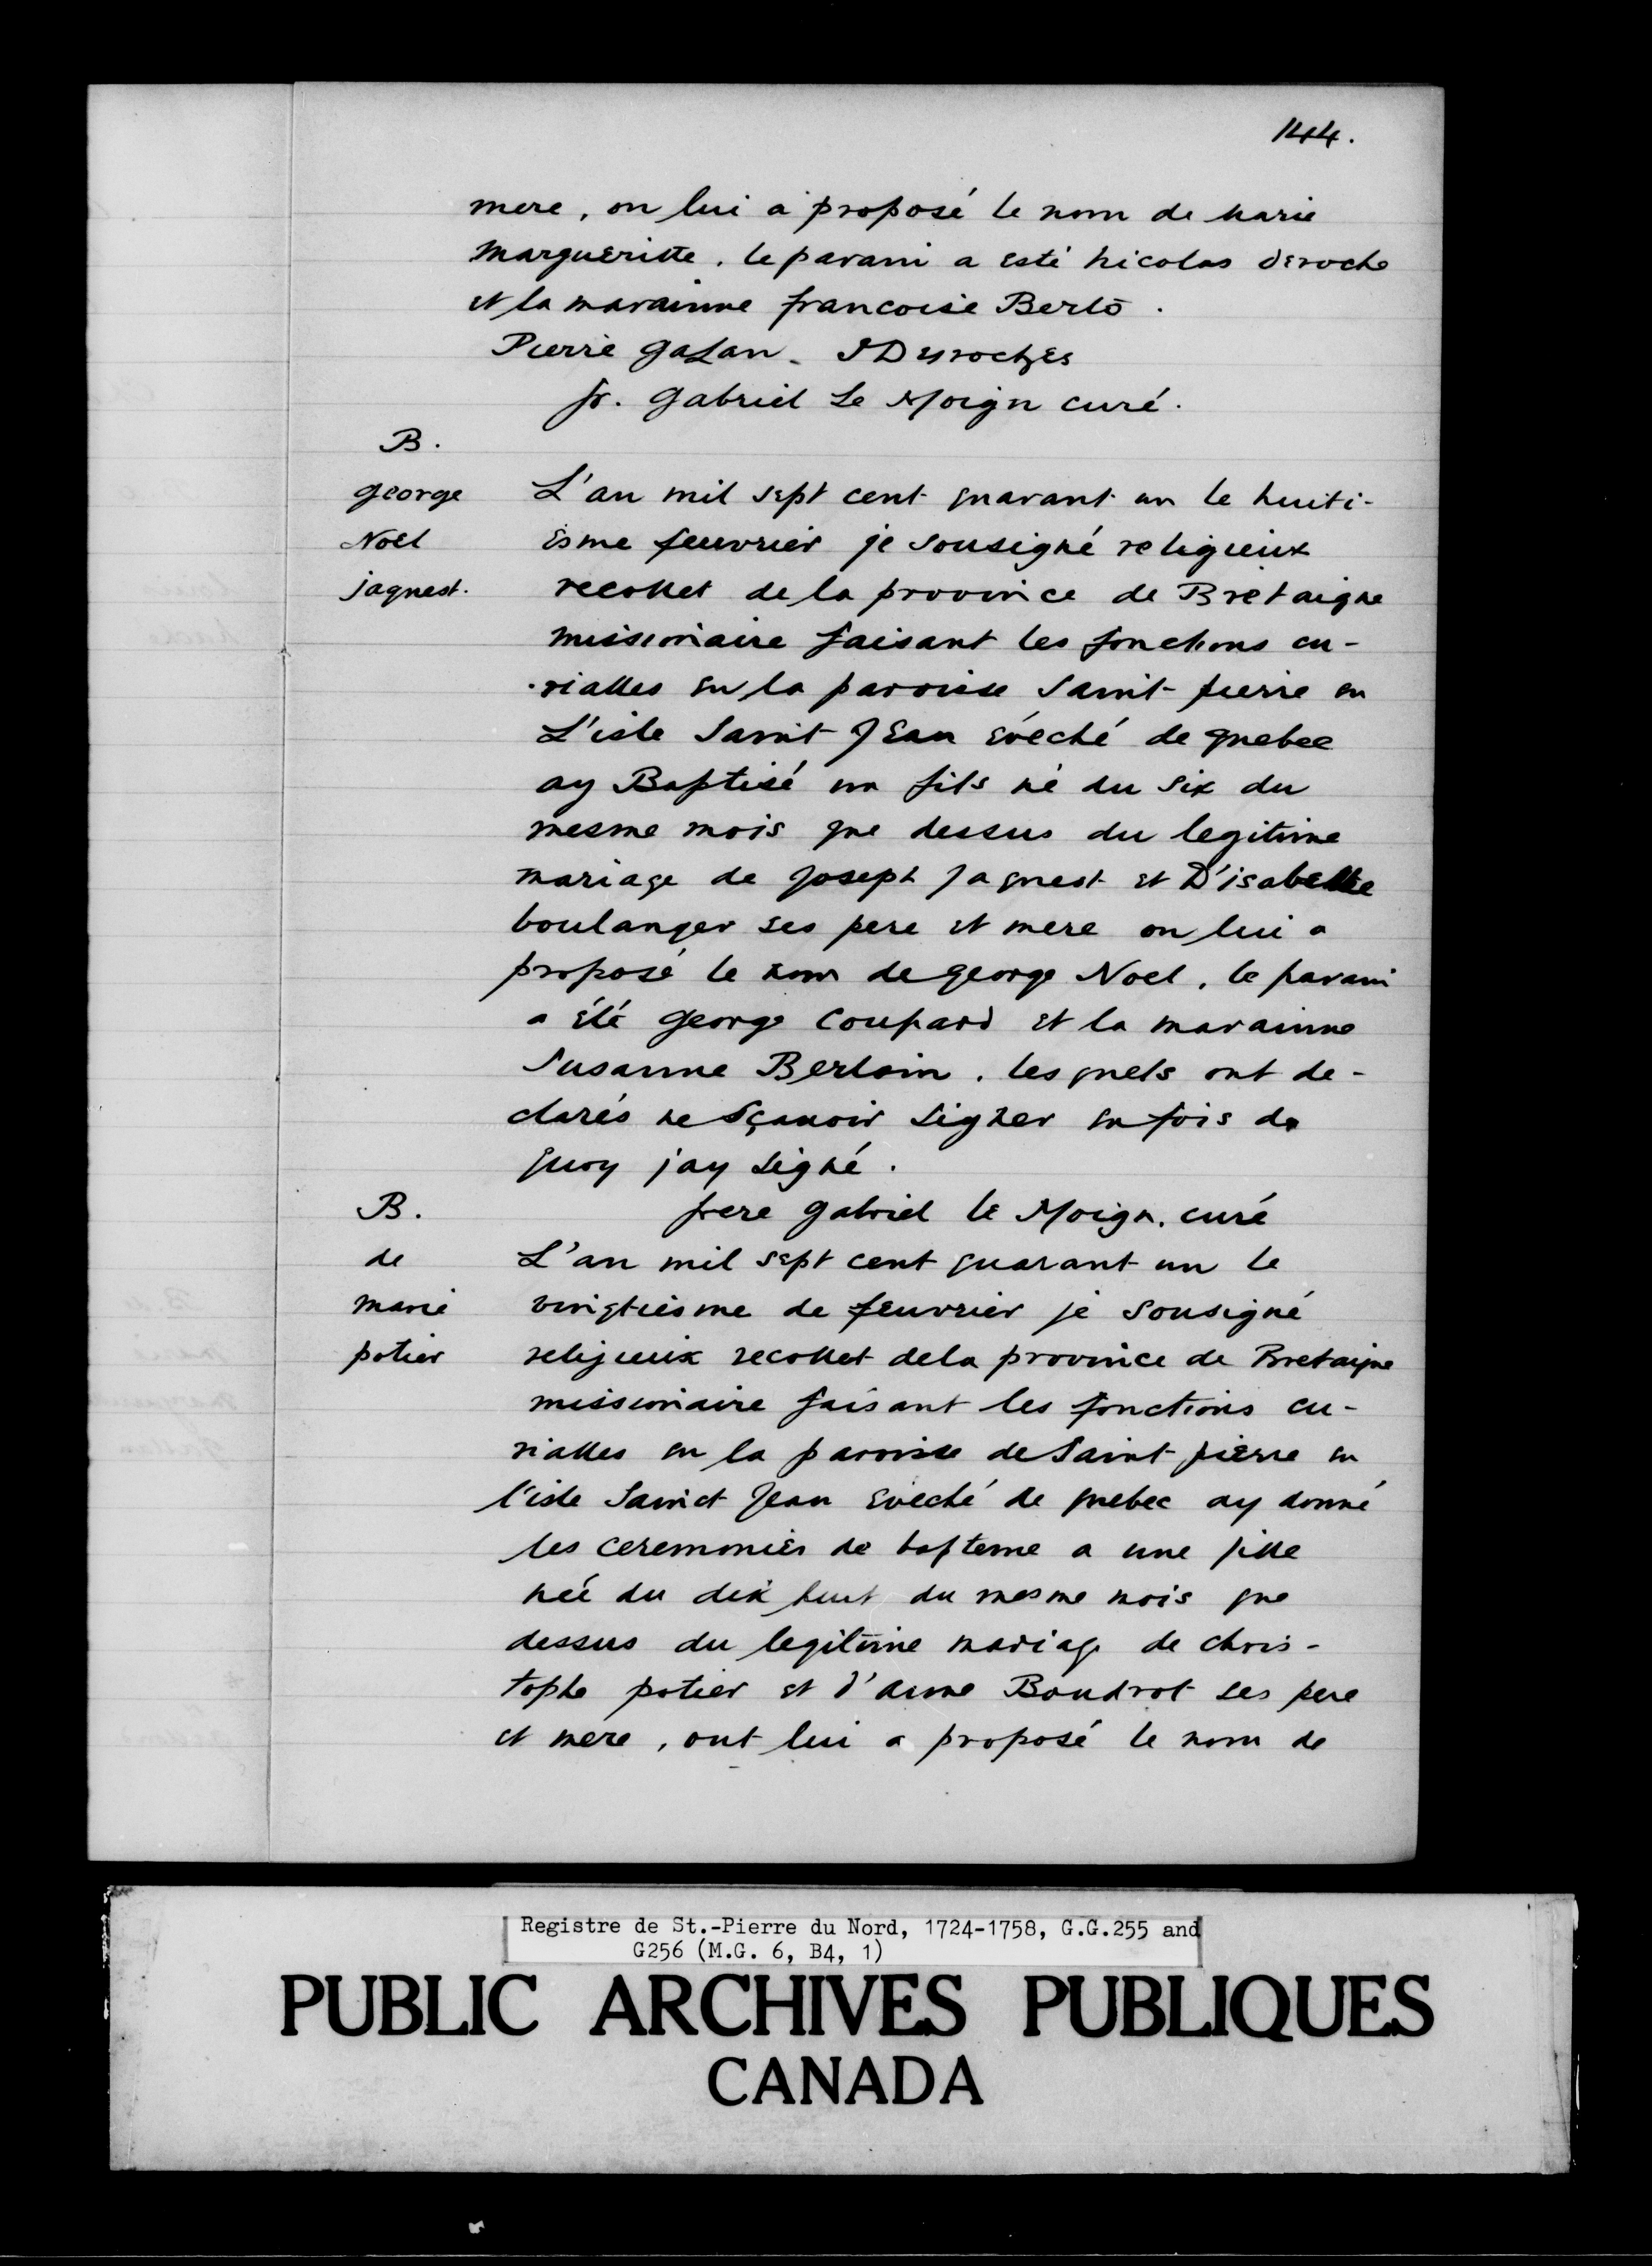 144.
mere, on lui a proposé le nom de marie
margueritte. le parain a esté nicolas deroche
et la marainne francoise Berlo.
Pierre galan. JDesroches
fr. gabriel Le Moign curé.
B.
george L'an mil sept cent quarant un le huiti-
Noel esme feuvrier je sousigné religieux
jaquest. recollet de la province de Bretaigne
missionaire faisant les fonctions cu-
rialles en la paroisse saint pierre en
L'isle saint Jean évéché de quebec
ay Baptisé un fils né du six du
mesme mois que dessus du legitime
mariage de joseph jaquest et D'isabelle
boulanger ses pere et mere on lui a
proposé le nom de george Noel, le parain
a été george coupard et la marainne
susanne Berloin. lesquels ont de-
clarés ne sçauoir signer en fois de
quoy jay signé.
frere gabriel le Moign. curé
B.
de L'an mil sept cent quarant un le
marie vingtiesme de feuvrier je sousigné
potier religieux recollet dela province de Bretaigne
missionaire faisant les fonctions cu-
rialles en la paroisse de saint pierre en
l'isle sainct Jean eveché de quebec ay donné
les ceremonies de bapteme a une fille
née du dix huit du mesme mois que
dessus du legitime mariage de chris-
tophe potier et d'anne Boudrot ses pere
et mere, ont lui a proposé le nom de
Registre de St.-Pierre du Nord, 1724-1758, G.G.255 and
G256 (M.G. 6, B4, 1)
PUBLIC ARCHIVES PUBLIQUES
CANADA